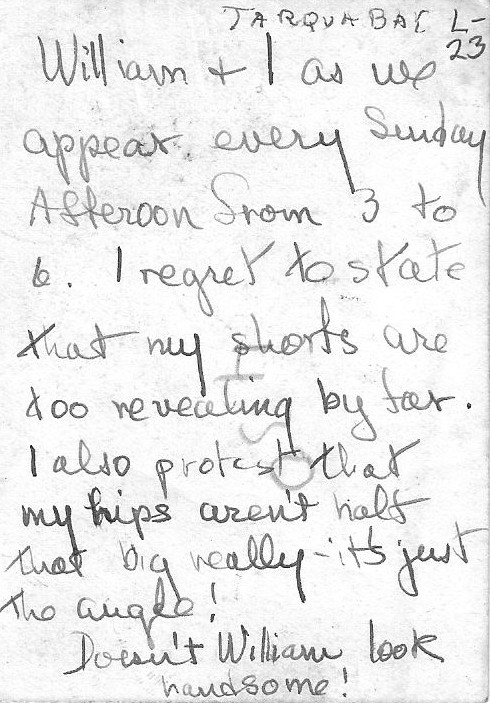 TARQUA BAY L-23
William + I as we
appear every Sunday
Afteroon from 3 to
6. I regret to state
that my shorts are
too revealing by far.
I also protest that
my hips aren't half
that big really - it's just
the angle!
Doesn't William look
handsome!